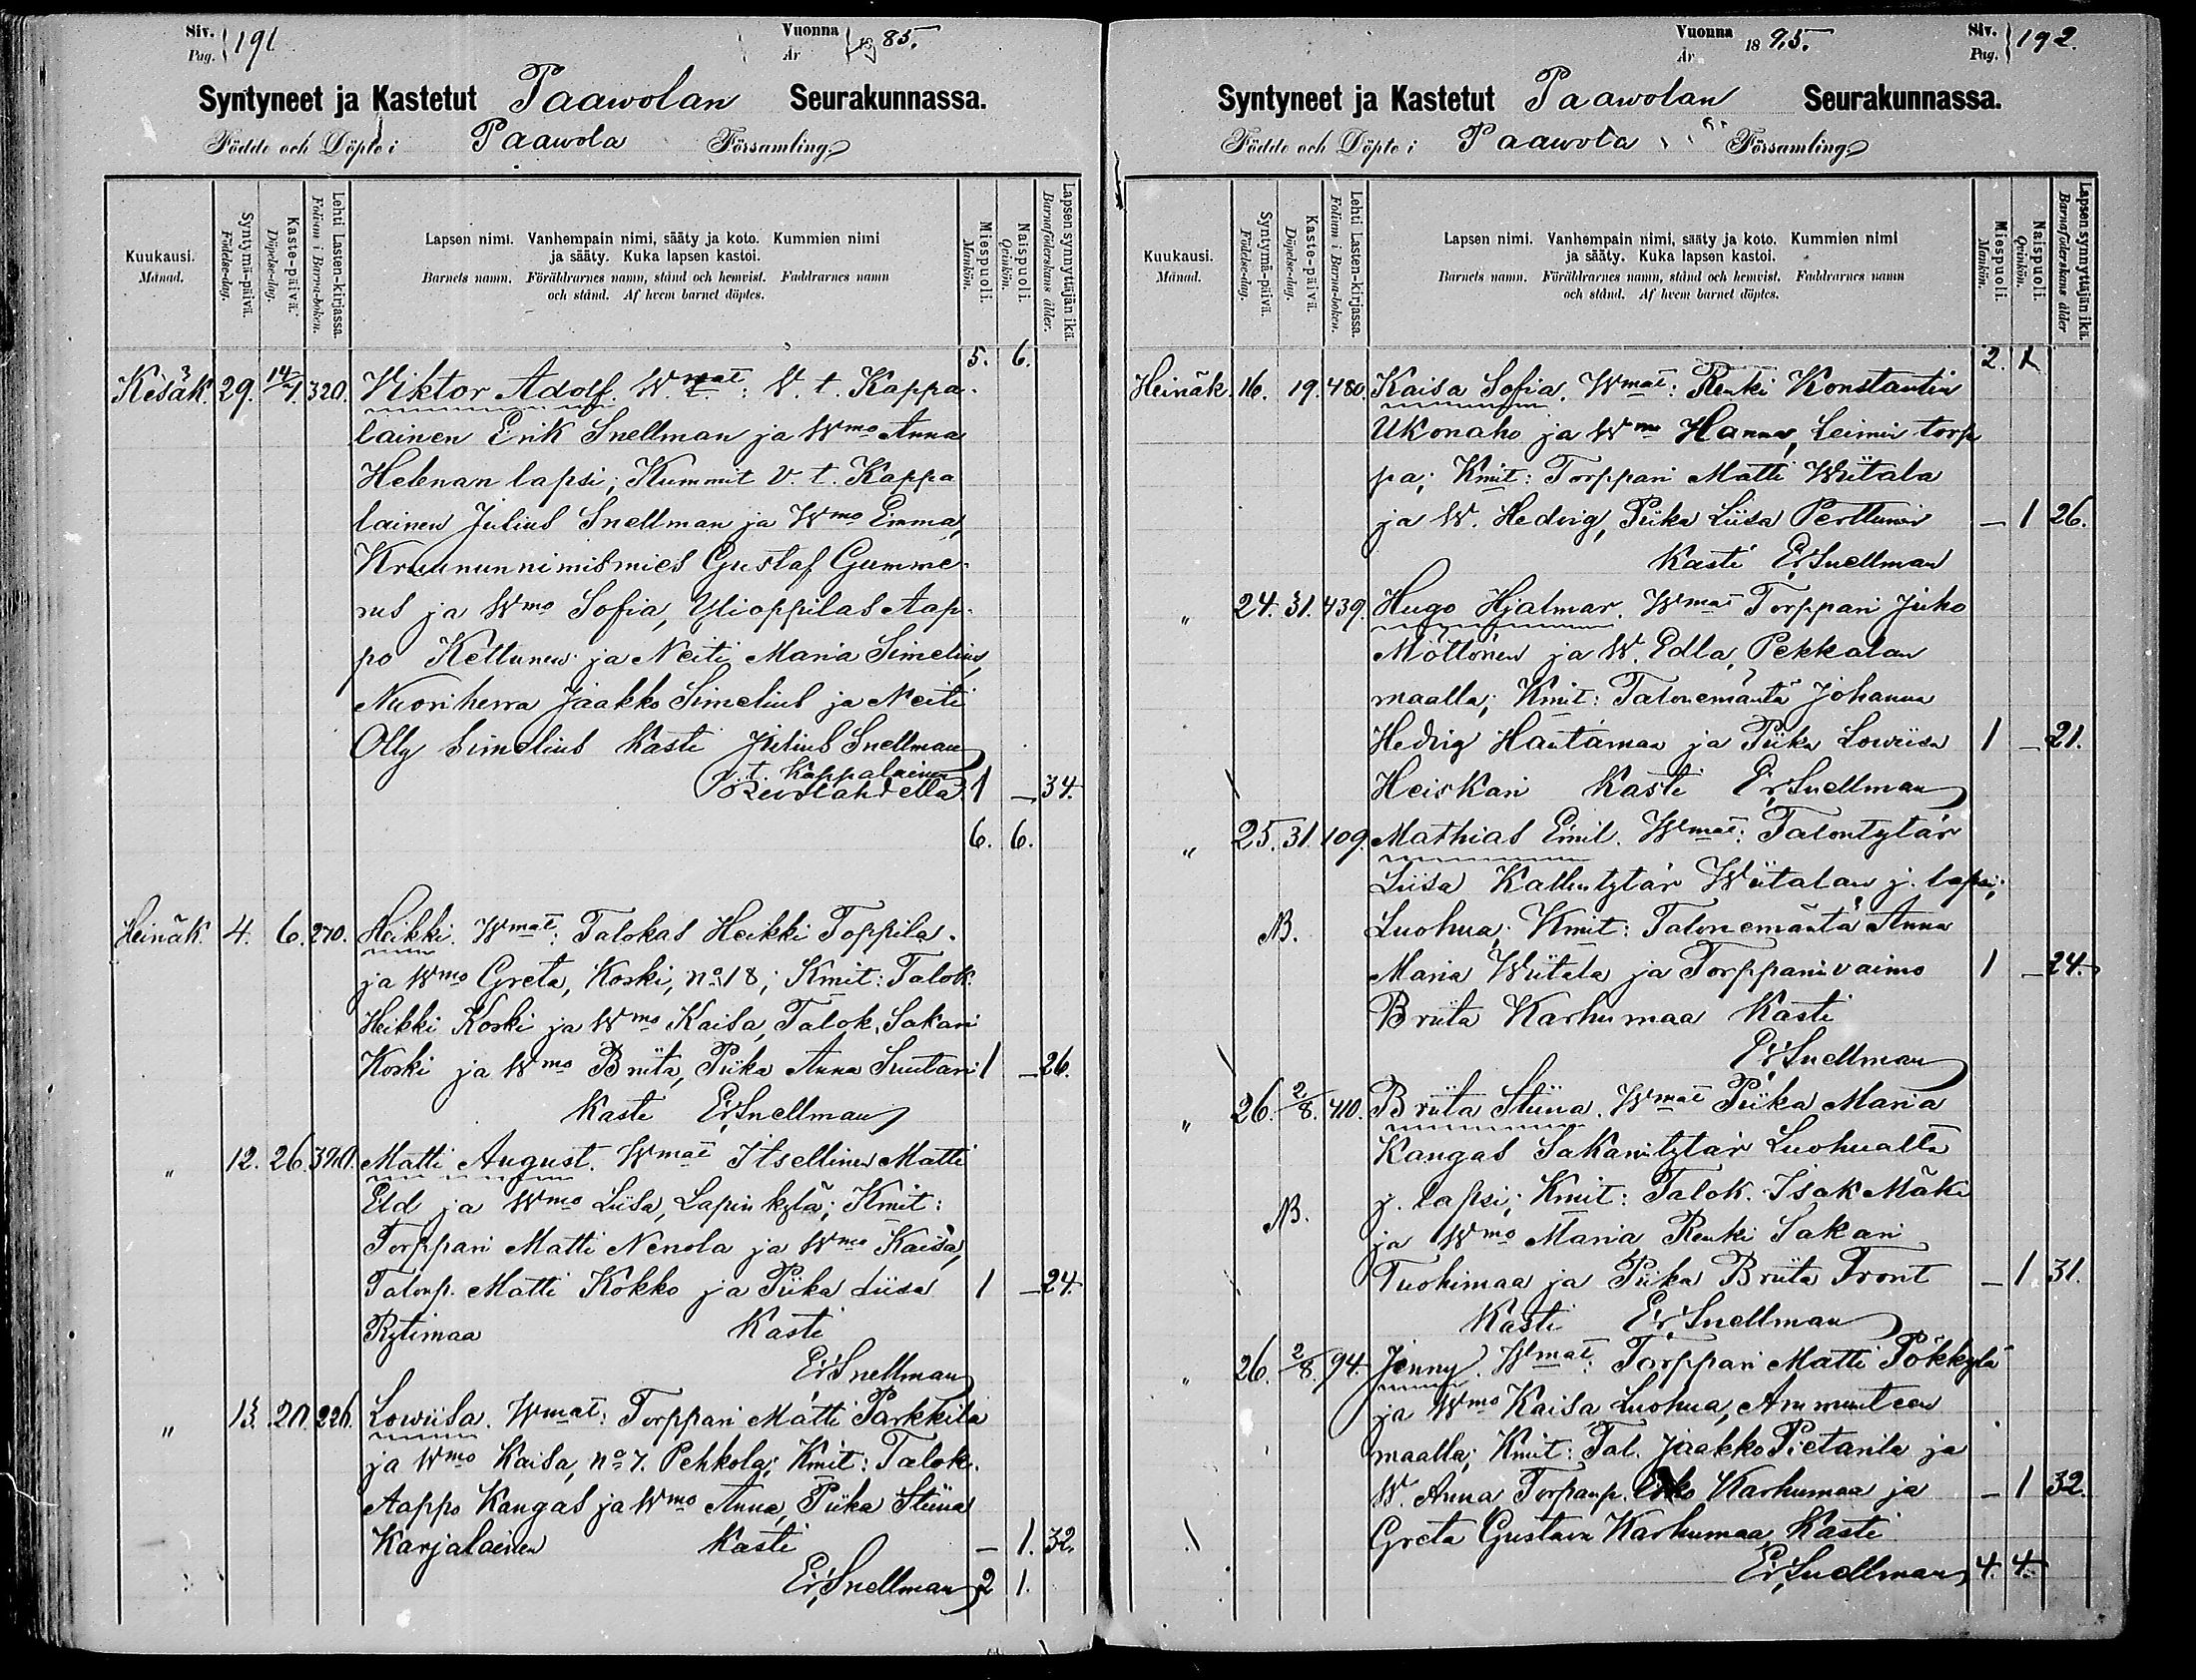 Siv. Pag. 191
Vuonna År 1885.
Syntyneet ja Kastetut Paawolan Seurakunnassa.
Födde och Döpte i Paawola Församling.
Kuukausi. Månad.
Syntymä-päivä. Födelse-dag.
Kaste-päivä. Döpelse-dag.
Lehti Lasten-kirjassa. Folium i Barna-boken.
Lapsen nimi. Vanhempain nimi, sääty ja koto. Kummien nimi
ja sääty. Kuka lapsen kastoi.
Barnets namn. Föräldrarnes namn, stånd och hemvist. Faddrarnes namn
och stånd. Af hvem barnet döptes.
Miespuoli. Mankön.
Naispuoli. Qvinkön.
Lapsen synnyttäjän ikä. Barnaföderskans ålder.
5. 6.
Kesäk. 29. 320. Viktor Adolf. W. t. Kappa-
lainen Erik Snellman ja Wmo Anna
Helenan lapsi; Kummit v. t. Kappa
lainen Julius Snellman ja Wmo Emma,
Kruununnimismies Gustaf Gumme-
rus ja Wmo Sofia, Ylioppilas Aap-
po Kettunen ja Neiti Maria Simelius,
Nuoriherra Jaakko Simelius ja Neiti
Olly Simelius Kasti Julius Snellman
v. t. Kappalainen
Revonlahdella 1 — 34.
6. 6.
Heinäk. 4. 6. 270. Heikki. Wmat: Talokas Heikki Toppila
ja Wmo Greta, Koski, no 18; Kmit: Talok.
Heikki Koski ja Wmo Kaisa, Talok. Sakari
Koski ja Wmo Briita, Piika Anna Suutari 1 — 26.
Kasti Er. Snellman
" 12. 26. Matti August. Wmat Itsellinen Matti
Eld ja Wmo Liisa, Lapinkylä; Kmit:
Torppari Matti Nenola ja Wmo Kaisa,
Talonp. Matti Kokko ja Piika Liisa 1 — 24.
Rytimaa Kasti
Er. Snellman
" 13. 20. 226. Lowiisa. Wmat: Torppari Matti Parkkila
ja Wmo Kaisa, no 7. Pehkola; Kmit: Talok.
Aappo Kangas ja Wmo Anna, Piika Stiina
Karjalainen Kasti — 1. 32.
Er. Snellman 2 1.
Vuonna År 1895.
Siv. Pag. 192.
Syntyneet ja Kastetut Paawolan Seurakunnassa.
Födde och Döpte i Paawola Församling.
Kuukausi. Månad.
Syntymä-päivä. Födelse-dag.
Kaste-päivä. Döpelse-dag.
Lehti Lasten-kirjassa. Folium i Barna-boken.
Lapsen nimi. Vanhempain nimi, sääty ja koto. Kummien nimi
ja sääty. Kuka lapsen kastoi.
Barnets namn. Föräldrarnes namn, stånd och hemvist. Faddrarnes namn
och stånd. Af hvem barnet döptes.
Miespuoli. Mankön.
Naispuoli. Qvinkön.
Lapsen synnyttäjän ikä. Barnaföderskans ålder
2. 1
Heinäk. 16. 19. 480. Kaisa Sofia. Wmat: Renki Konstantin
Ukonaho ja Wmo Hanna, Leimin torp
pa; Kmit: Torppari Matti Wiitala
ja W. Hedvig, Piika Liisa Perttunen — 1 26.
Kasti Er. Snellman
" 24. 31. 439. Hugo Hjalmar. Wmat Torppari Juho
Möttönen ja W. Edla, Pekkalan
maalla; Kmit: Talonemäntä Johanna
Hedvig Hautamaa ja Piika Lowiisa 1 — 21.
Heiskari Kasti Er. Snellman
" 25. 31. 109. Mathias Emil. Wmat: Talontytär
Liisa Kallentytär Wiitalan j. lapsi;
NB. Luohua; Kmit: Talonemäntä Anna
Maria Wiitala ja Torpparinvaimo 1 — 24.
Briita Karhumaa Kasti
Er. Snellman
" 26. 2/8. 410. Briita Stiina. Wmat Piika Maria
Kangas Sakarintytär Luohualta
NB. j. lapsi; Kmit: Talok. Isak Mäki
ja Wmo Maria Renki Sakari
Tuohimaa ja Piika Briita Front — 1 31.
Kasti Er. Snellman
" 26. 2/8. 94. Jenny. Wmat: Torppari Matti Pökkylä
ja Wmo Kaisa Luohua, Ammuntean
maalla; Kmit: Tal. Jaakko Pietarila ja
W. Anna Torpanp. Erko Karhumaa ja — 1 32.
Greta Gustava Karhumaa Kasti
Er. Snellman 4. 4.